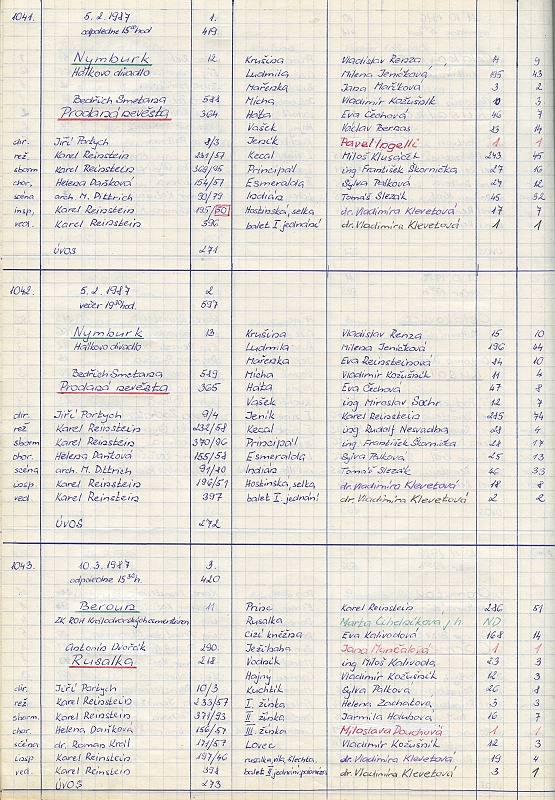 1041. 5. 2. 1987 1.
odpoledne 15⁰⁰ hod 419
Nymburk 12 Krušina Vladislav Řenza 14 9
Hálkovo divadlo Ludmila Milena Jeničková 195 43
Mařenka Jana Maříková 3 2
Bedřich Smetana 588 Mícha Vladimír Kožušník 10 3
Prodaná nevěsta 364 Háta Eva Čechová 46 7
Vašek Václav Bernas 23 14
dir. Jiří Portych 8/3 Jeník Pavel Ingelli 1 1
rež. Karel Reinstein 231/57 Kecal Miloš Klusáček 243 45
sborm Karel Reinstein 369/95 Principál ing. František Škornička 27 16
chor. Helena Daňková 154/57 Esmeralda Sylva Pálková 24 12
scéna arch. M. Dittrich 90/79 Indián Tomáš Slezák 45 32
insp. Karel Reinstein 195/50 Hostinská, selka dr. Vladimíra Klevetová 17 7
ved. Karel Reinstein 396 balet I. jednání dr. Vladimíra Klevetová 1 1
ÚVOS 271
1042. 5. 2. 1987 2.
večer 19³⁰ hod. 597
Nymburk 13 Krušina Vladislav Řenza 15 10
Hálkovo divadlo Ludmila Milena Jeničková 196 44
Mařenka Eva Reinsteinová 24 10
Bedřich Smetana 589 Mícha Vladimír Kožušník 11 4
Prodaná nevěsta 365 Háta Eva Čechová 47 8
Vašek ing. Miroslav Sochr 12 7
dir. Jiří Portych 9/4 Jeník Karel Reinstein 285 74
rež Karel Reinstein 232/58 Kecal ing. Rudolf Nesvadba 28 4
sborm Karel Reinstein 370/96 Principál ing. František Škornička 28 17
chor. Helena Daňková 155/58 Esmeralda Sylva Pálková 25 13
scéna arch. M. Dittrich 91/80 Indián Tomáš Slezák 46 33
insp Karel Reinstein 196/51 Hostinská, selka dr. Vladimíra Klevetová 18 8
ved. Karel Reinstein 397 balet I. jednání dr. Vladimíra Klevetová 2 2
ÚVOS 272
1043. 10. 3. 1987 3.
odpoledne 15³⁰ h. 420
Beroun 11 Princ Karel Reinstein 286 51
ZK ROH Králodvorských cementáren Rusalka ND
Cizí kněžna Eva Kalivodová 168 14
Antonín Dvořák 290 Ježibaba Jana Munčalová 1 1
Rusalka 218 Vodník ing. Miloš Kalivoda 23 3
Hajný Vladimír Kožušník 12 3
dir. Jiří Portych 10/3 Kuchtík Sylva Pálková 26 8
rež Karel Reinstein 233/57 I. žínka Helena Zachatová 3 3
sborm. Karel Reinstein 371/93 II. žínka Jarmila Holubová 16 7
chor. Helena Daňková 156/57 III. žínka Miloslava Douchová 1 1
scéna dr. Roman Král 171/57 Lovec Vladimír Kožušník 12 3
insp Karel Reinstein 197/46 dr. Vladimíra Klevetová 19 4
ved. Karel Reinstein 398 balet II. jednání polonéza dr. Vladimíra Klevetová 3 1
ÚVOS 273